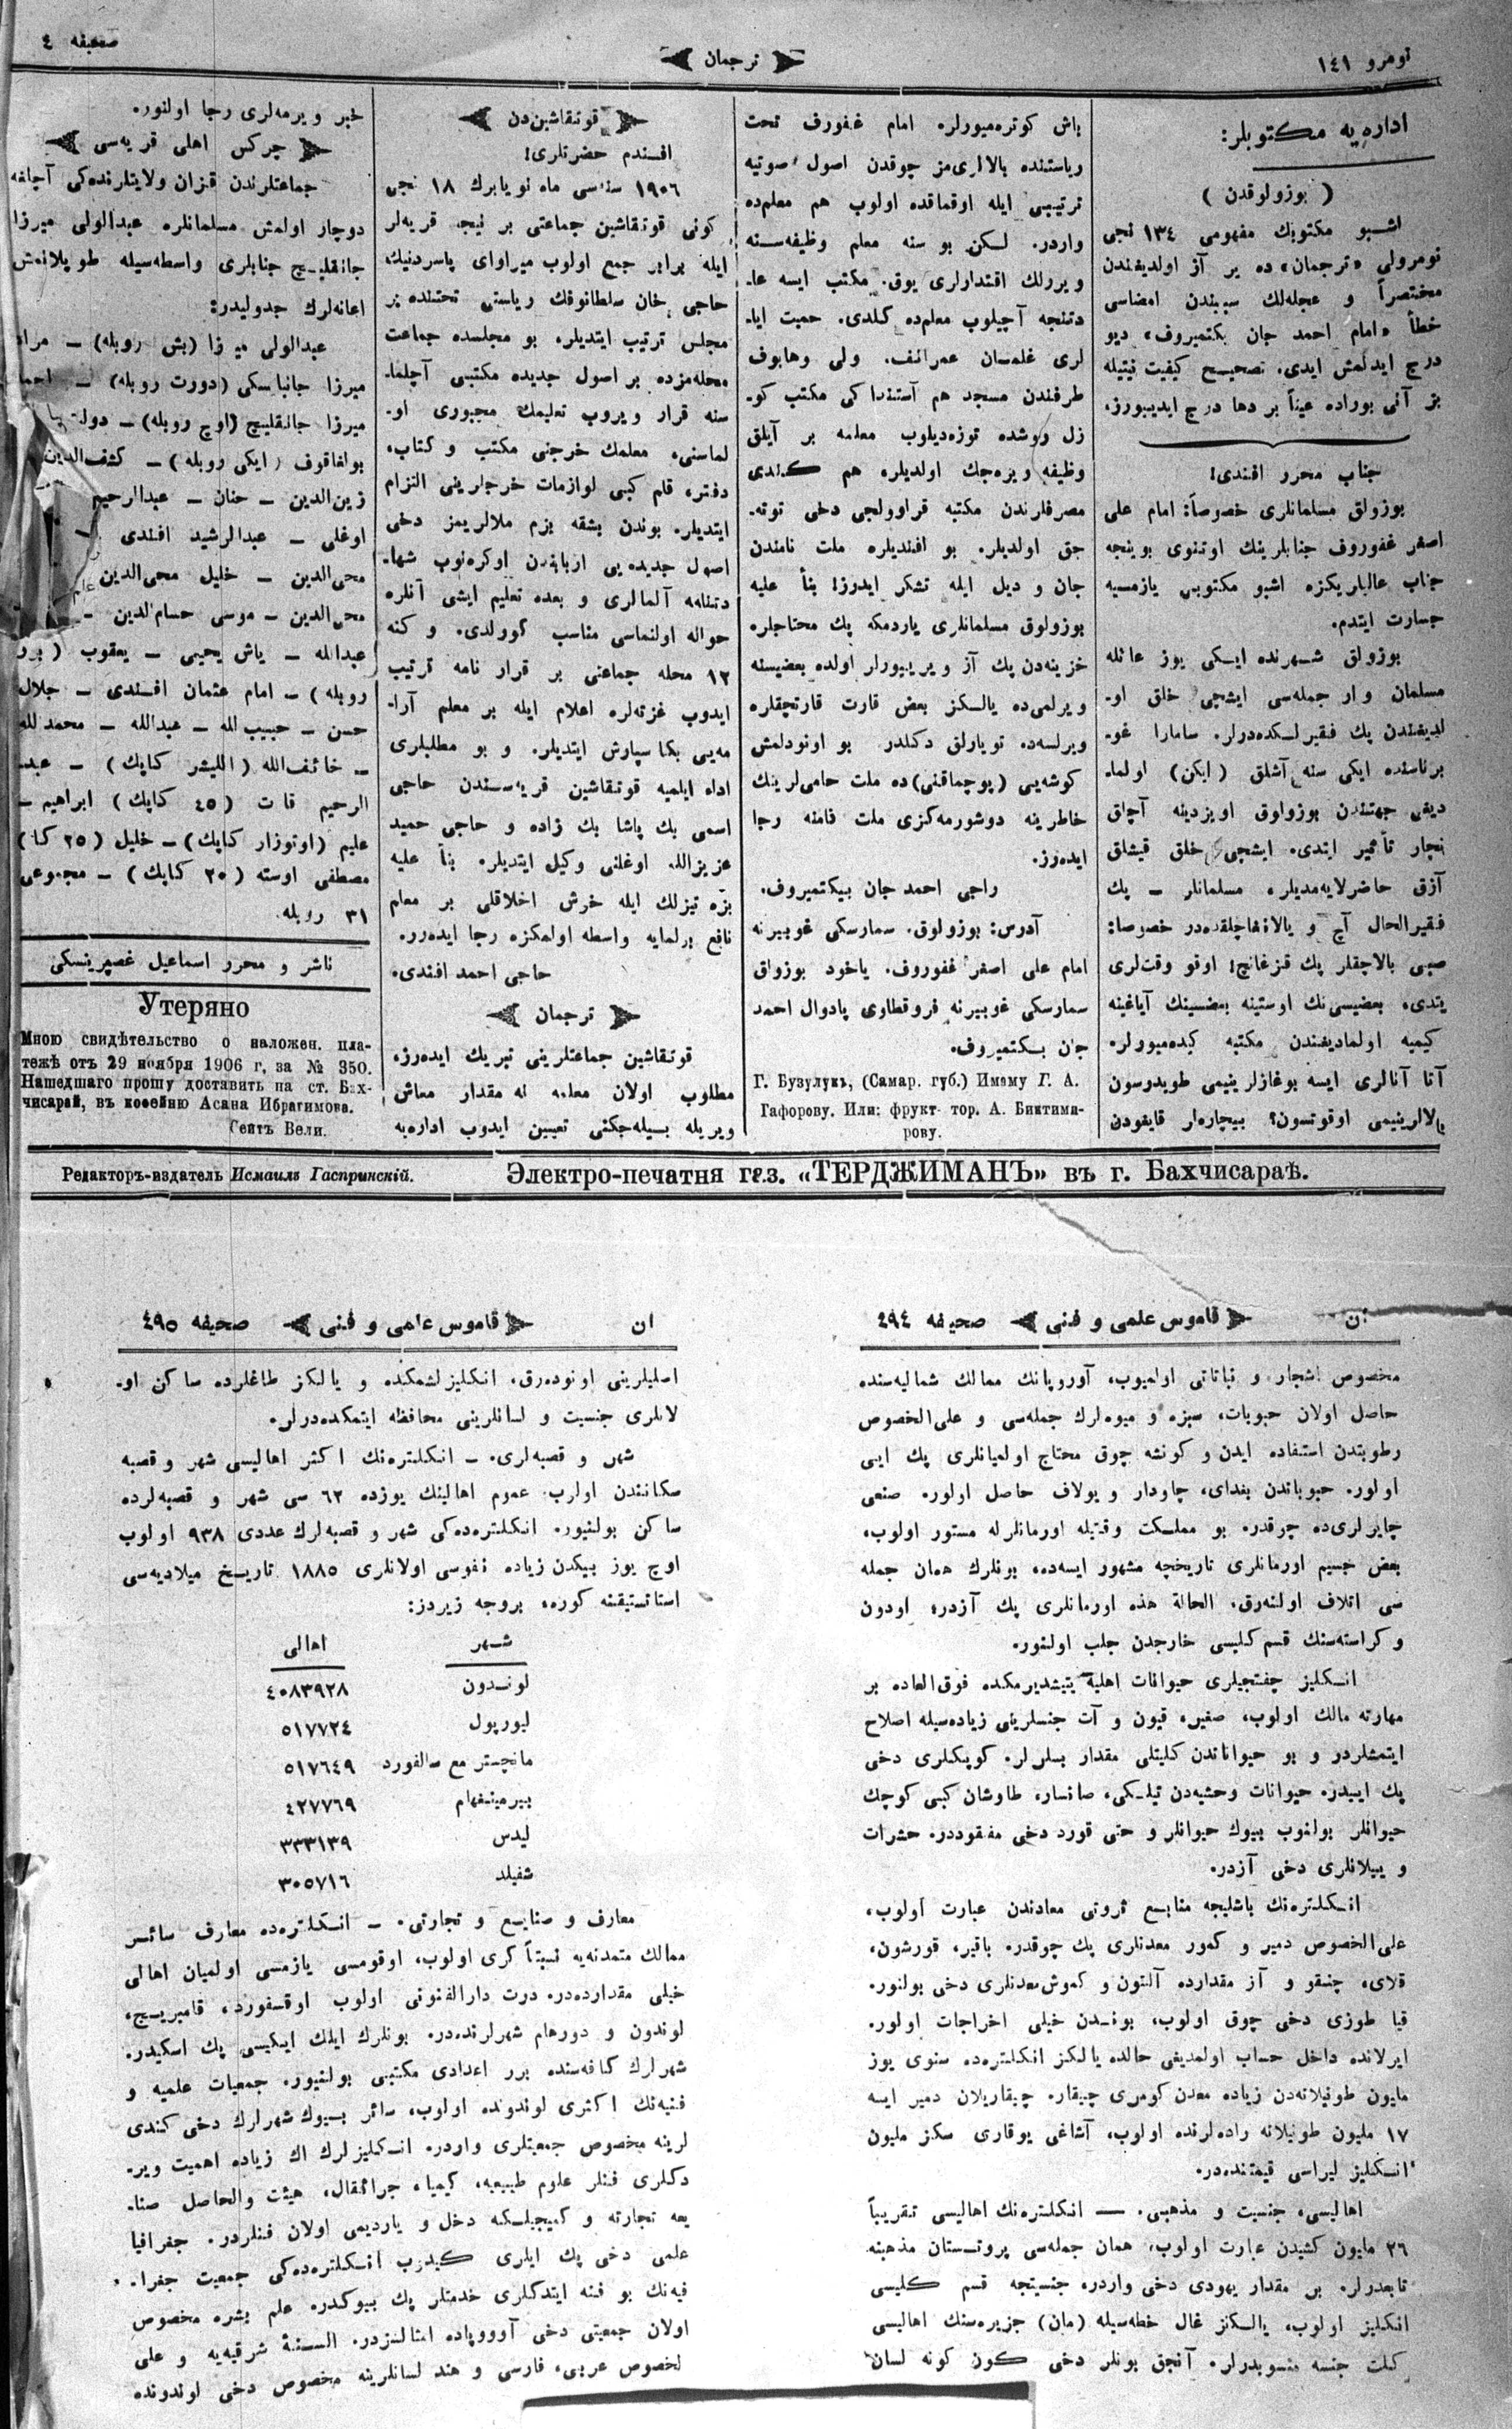 نومرو ١٤١
ترجمان
صحیفه ٤
اداره‌یه مکتوبلر:
( بوزولوقدن )
اشبو مکتوبك مفهومی ١٣٤ نجی
نومرولی «ترجمان» ده بر آز اولدیغندن
مختصراً و عجله‌لك سببندن امضاسی
خطأ «امام احمد جان بکتمیروف» دیو
درج ایدلمش ایدی. تصحیح کیفیت نیتیله
بز آنی بوراده عیناً بر دها درج ایدییورز.
جناب محرر افندی!
بوزولق مسلمانلری خصوصاً: امام علی
اصغر غفوروف جنابلرینك اوتنوی بوینجه
جناب عالیلریکزه اشبو مکتوبی یازمسیه
جسارت ایتدم.
بوزولق شهرنده ایکی یوز عائله
مسلمان وار جمله‌سی ایشچی خلق او-
لدیغندن پك فقیرلکده‌درلر. سامارا غو-
برناسنده ایکی سنه آشلق (ایکن) اولما-
دیغی جهتندن بوزولوق اویزدینه آچلق
نجار تأثیر ایتدی. ایشچی خلق قیشلق
آزق حاضرلایه‌مدیلر، مسلمانلر – پك
فقیرالحال آچ و یالانغاچلقده‌در خصوصا:
صبی بالاچقلر پك قزغانچ! اوقو وقت‌لری
یتدی، بعضیسی‌نك اوستینه بعضسینك آیاغینه
کیمیه اولمادیغندن مکتبه کیده‌میورلر.
آتا آنالری ایسه بوغازلرینیمی طویدوسون
بالالرینیمی اوقوتسون؟ بیچاره‌لر قایغودن
باش کوتره‌میورلر. امام غفورف تحت
ریاستنده بالالری‌مز چوقدن اصول صوتیه
ترتیبی ایله اوقماقده اولوب هم معلم‌ده
واردر. لکن بو سنه معلم وظیفه‌سنه
ویررلك اقتدارلری یوق. مکتب ایسه عا-
دتنجه آچیلوب معلم‌ده کلدی. حمیت ایا-
لری غلمسان عمرائف، ولی وهابوف
طرفندن مسجد هم آستنداکی مکتب کو-
زل روشده توزه‌دیلوب معلمه بر آیلق
وظیفه ویره‌جك اولدیلر، هم کندی
مصرفلرندن مکتبه قراوولجی دخی توته-
جق اولدیلر. بو افندیلره ملت نامندن
جان و دیل ایله تشکر ایدرز! بنأ علیه
بوزولوق مسلمانلری یاردمکه پك محتاجلر،
خزینه‌دن پك آز ویرییورلر اولده بعضیسنه
ویرلمی‌ده یالکز بعض قارت قارتچقلره
ویرلسه‌ده. تویارلق دکلدر بو اونودلمش
کوشه‌یی (پوچماقنی) ده ملت حامی‌لرینك
خاطرینه دوشورمه‌کزی ملت نامنه رجا
ایده‌رز.
راجی احمد جان بیکتمیروف.
آدرس: بوزولوق، سمارسکی غوبیرنه
امام علی اصغر غفوروف. یاخود بوزولق
سمارسکی غوبیرنه فروقطاوی پادوال احمد
جان بکتمیروف.
Г. Бузулукъ, (Самар. губ.) Имаму Г. А.
Гафорову. Или: фрукт. тор. А. Биктими-
рову.
قوتقاشین‌دن
افندم حضرتلری!
١٩٠٦ سنه‌سی ماه نویابرك ١٨ نجی
کونی قوتقاشین جماعتی بر نیجه قریه‌لر
ایله برابر جمع اولوب میراوای پاسردنیك
حاجی خان سلطانوفك ریاستی تحتنده بر
مجلس ترتیب ایتدیلر. بو مجلسده جماعت
محله‌مزده بر اصول جدیده مکتبی آچلما-
سنه قرار ویروب تعلیمك مجبوری او-
لماسنی، معلمك خرجنی مکتب و کتاب،
دفتر، قلم کبی لوازمات خرجلرینی التزام
ایتدیلر. بوندن بشقه بزم ملالریمز دخی
اصول جدیده‌یی اوکره‌نوب شها-
دتنامه آلمالری و بعده تعلیم ایشی آنلره
حواله اولنماسی مناسب کوولدی. و کنه
١٢ محله جماعتی بر قرار نامه ترتیب
ایدوب غزته‌لره اعلام ایله بر معلم آرا-
مه‌یی بکا سپارش ایتدیلر. و بو مطلبلری
اداء ایلمیه قوتقاشین قریه‌سندن حاجی
اسمی بك پاشا بك زاده و حاجی حمید
عزیزالله اوغلنی وکیل ایتدیلر. بنأ علیه
بزه تیزلك ایله خوش اخلاقلی بر معلم
نافع بولمایه واسطه اولمکزه رجا ایده‌رز.
حاجی احمد افندی.
ترجمان
قوتقاشین جماعتلرینی تبریك ایده‌رز،
مطلوب اولان معلمه نه مقدار معاش
ویریله بیله‌جکنی تعیین ایدوب اداره‌یه
خبر ویرمه‌لری رجا اولنور.
چرکس اهلی قریه‌سی
جماعتلرندن قزان ولایتلرنده‌کی آچلغه
دوچار اولمش مسلمانلره عبدالولی میرزا
جانقلیچ جنابلری واسطه‌سیله طوپلانمش
اعانه‌لرك جدولیدر:
عبدالولی میرزا (بش روبله) – مراد
میرزا جانباسکی (دورت روبله) – احمد
میرزا جانقلیچ (اوچ روبله) – دولت
بولغاقوف (ایکی روبله) – کشف‌الدین
زین‌الدین – حنان – عبدالرحیم
اوغلی – عبدالرشید افندی
محی‌الدین – خلیل محی‌الدین
محی‌الدین – موسی حسام‌الدین –
عبدالله – یاش یحیی – یعقوب (برر
روبله) – امام عثمان افندی – جلال
حسن – حبیب الله – عبدالله – محمدلله
– خائف‌الله (اللیشر کاپك) – عبد
الرحیم قات (٤٥ کاپك) ابراهیم –
علیم (اوتوزار کاپك) – خلیل (٢٥ کا)
مصطفی اوسته (٢٠ کاپك) – مجموعی
٣١ روبله.
ناشر و محرر اسماعیل غصپرینسکی
Утеряно
Мною свидѣтельство о наложен. пла-
тежѣ отъ 29 ноября 1906 г, за № 350.
Нашедшаго прошу доставить на ст. Бах-
чисарай, въ кофейню Асана Ибрагимова.
Сеитъ Вели.
Редакторъ-издатель Исмаилъ Гаспринскій.
Электро-печатня газ. «ТЕРДЖИМАНЪ» въ г. Бахчисараѣ.
ان
قاموس علمی و فنی
صحیفه ٤٩٤
مخصوص اشجار و نباتاتی اولمیوب، آوروپانك ممالك شمالیه‌سنده
حاصل اولان حبوبات، سبزه و میوه‌لرك جمله‌سی و علی‌الخصوص
رطوبتدن استفاده ایدن و کونشه چوق محتاج اولمیانلری پك ایی
اولور. حبوباتدن بغدای، چاودار و یولاف حاصل اولور. صنعی
چایرلری‌ده چوقدر. بو مملکت وقتیله اورمانلرله مستور اولوب،
بعض جسیم اورمانلری تاریخچه مشهور ایسه‌ده، بونلرك همان جمله
سی اتلاف اولنه‌رق، الحالة هذه اورمانلری پك آزدر؛ اودون
و کراسته‌سنك قسم کلیسی خارجدن جلب اولنور.
انکلیز چفتجیلری حیوانات اهلیه یتیشدیرمکده فوق‌العاده بر
مهارته مالك اولوب، صغیر، قیون و آت جنسلرینی زیاده‌سیله اصلاح
ایتمشلردر و بو حیواناتدن کلیتلی مقدار بسلرلر. کوپکلری دخی
پك اییدر. حیوانات وحشیه‌دن تیلکی، صانسار، طاوشان کبی کوچك
حیوانلر بولنوب بیوك حیوانلر و حتی قورد دخی مفقوددر. حشرات
و ییلانلری دخی آزدر.
انکلتره‌نك باشلیجه منابع ثروتی معادندن عبارت اولوب،
علی‌الخصوص دمیر و کمور معدنلری پك چوقدر. باقیر، قورشون،
قلای، چنقو و آز مقدارده آلتون و کموش معدنلری دخی بولنور.
قیا طوزی دخی چوق اولوب، بوندن خیلی اخراجات اولور.
ایرلانده داخل حساب اولمدیغی حالده یالکز انکلتره‌ده سنوی یوز
ملیون طونیلاته‌دن زیاده معدن کومری چیقار. چیقاریلان دمیر ایسه
١٧ ملیون طونیلاته راده‌لرنده اولوب، آشاغی یوقاری سکز ملیون
انکلیز لیراسی قیمتنده‌در.
اهالیسی، جنسیت و مذهبی. — انکلتره‌نك اهالیسی تقریباً
٢٦ ملیون کشیدن عبارت اولوب، همان جمله‌سی پروتستان مذهبنه
تابعدرلر. بر مقدار یهودی دخی واردر، جنسیتجه قسم کلیسی
انکلیز اولوب، یالکز غال خطه‌سیله (مان) جزیره‌سنك اهالیسی
کلت جنسه منسوبدرلر. آنجق بونلر دخی کون کونه لسان
ان
قاموس علمی و فنی
صحیفه ٤٩٥
اصلیلرینی اونوده‌رق، انکلیزلشمکده و یالکز طاغلرده ساکن او-
لانلری جنسیت و لسانلرینی محافظه ایتمکده‌درلر.
شهر و قصبه‌لری. – انکلتره‌نك اکثر اهالیسی شهر و قصبه
سکانندن اولوب عموم اهالینك یوزده ٦٢ سی شهر و قصبه‌لرده
ساکن بولنیور. انکلتره‌ده‌کی شهر و قصبه‌لرك عددی ٩٣٨ اولوب
اوچ یوز بیکدن زیاده نفوسی اولانلری ١٨٨٥ تاریخ میلادیه‌سی
استاتستیقنه کوره، بروجه زیردز:
شهر اهالی
لوندون ٤٠٨٣٩٢٨
لیورپول ٥١٧٧٢٤
مانچستر مع سالفورد ٥١٧٦٤٩
بیرمینغهام ٤٢٧٧٦٩
لیدس ٣٣٣١٣٩
شفیلد ٣٠٥٧١٦
معارف و صنایع و تجارتی. – انکلتره‌ده معارف سائر
ممالك متمدنه‌یه نسبتاً کری اولوب، اوقومسی یازمسی اولمیان اهالی
خیلی مقدارده‌در. درت دارالفنونی اولوب اوقسفورد، قامبریج،
لوندون و دورهام شهرلرنده‌در. بونلرك ایلك ایکیسی پك اسکیدر.
شهرلرك کافه‌سنده برر اعدادی مکتبی بولنیور. جمعیات علمیه و
فنیه‌نك اکثری لوندونده اولوب، سائر بیوك شهرلرك دخی کندی
لرینه مخصوص جمعیتلری واردر. انکلیزلرك اك زیاده اهمیت ویر-
دکلری فنلر علوم طبیعیه، کیمیا، جراثقال، هیئت والحاصل صنا-
یعه تجارته و کمیجیلکه دخل و یاردیمی اولان فنلردر. جغرافیا
علمی دخی پك ایلری کیدوب انکلتره‌ده‌کی جمعیت جغرا-
فیه‌نك بو فنه ایتدکلری خدمتلر پك بیوکدر. علم بشره مخصوص
اولان جمعیتی دخی آوروپاده امثالسزدر. السنۀ شرقیه‌یه و علی
لخصوص عربی، فارسی و هند لسانلرینه مخصوص دخی لوندونده